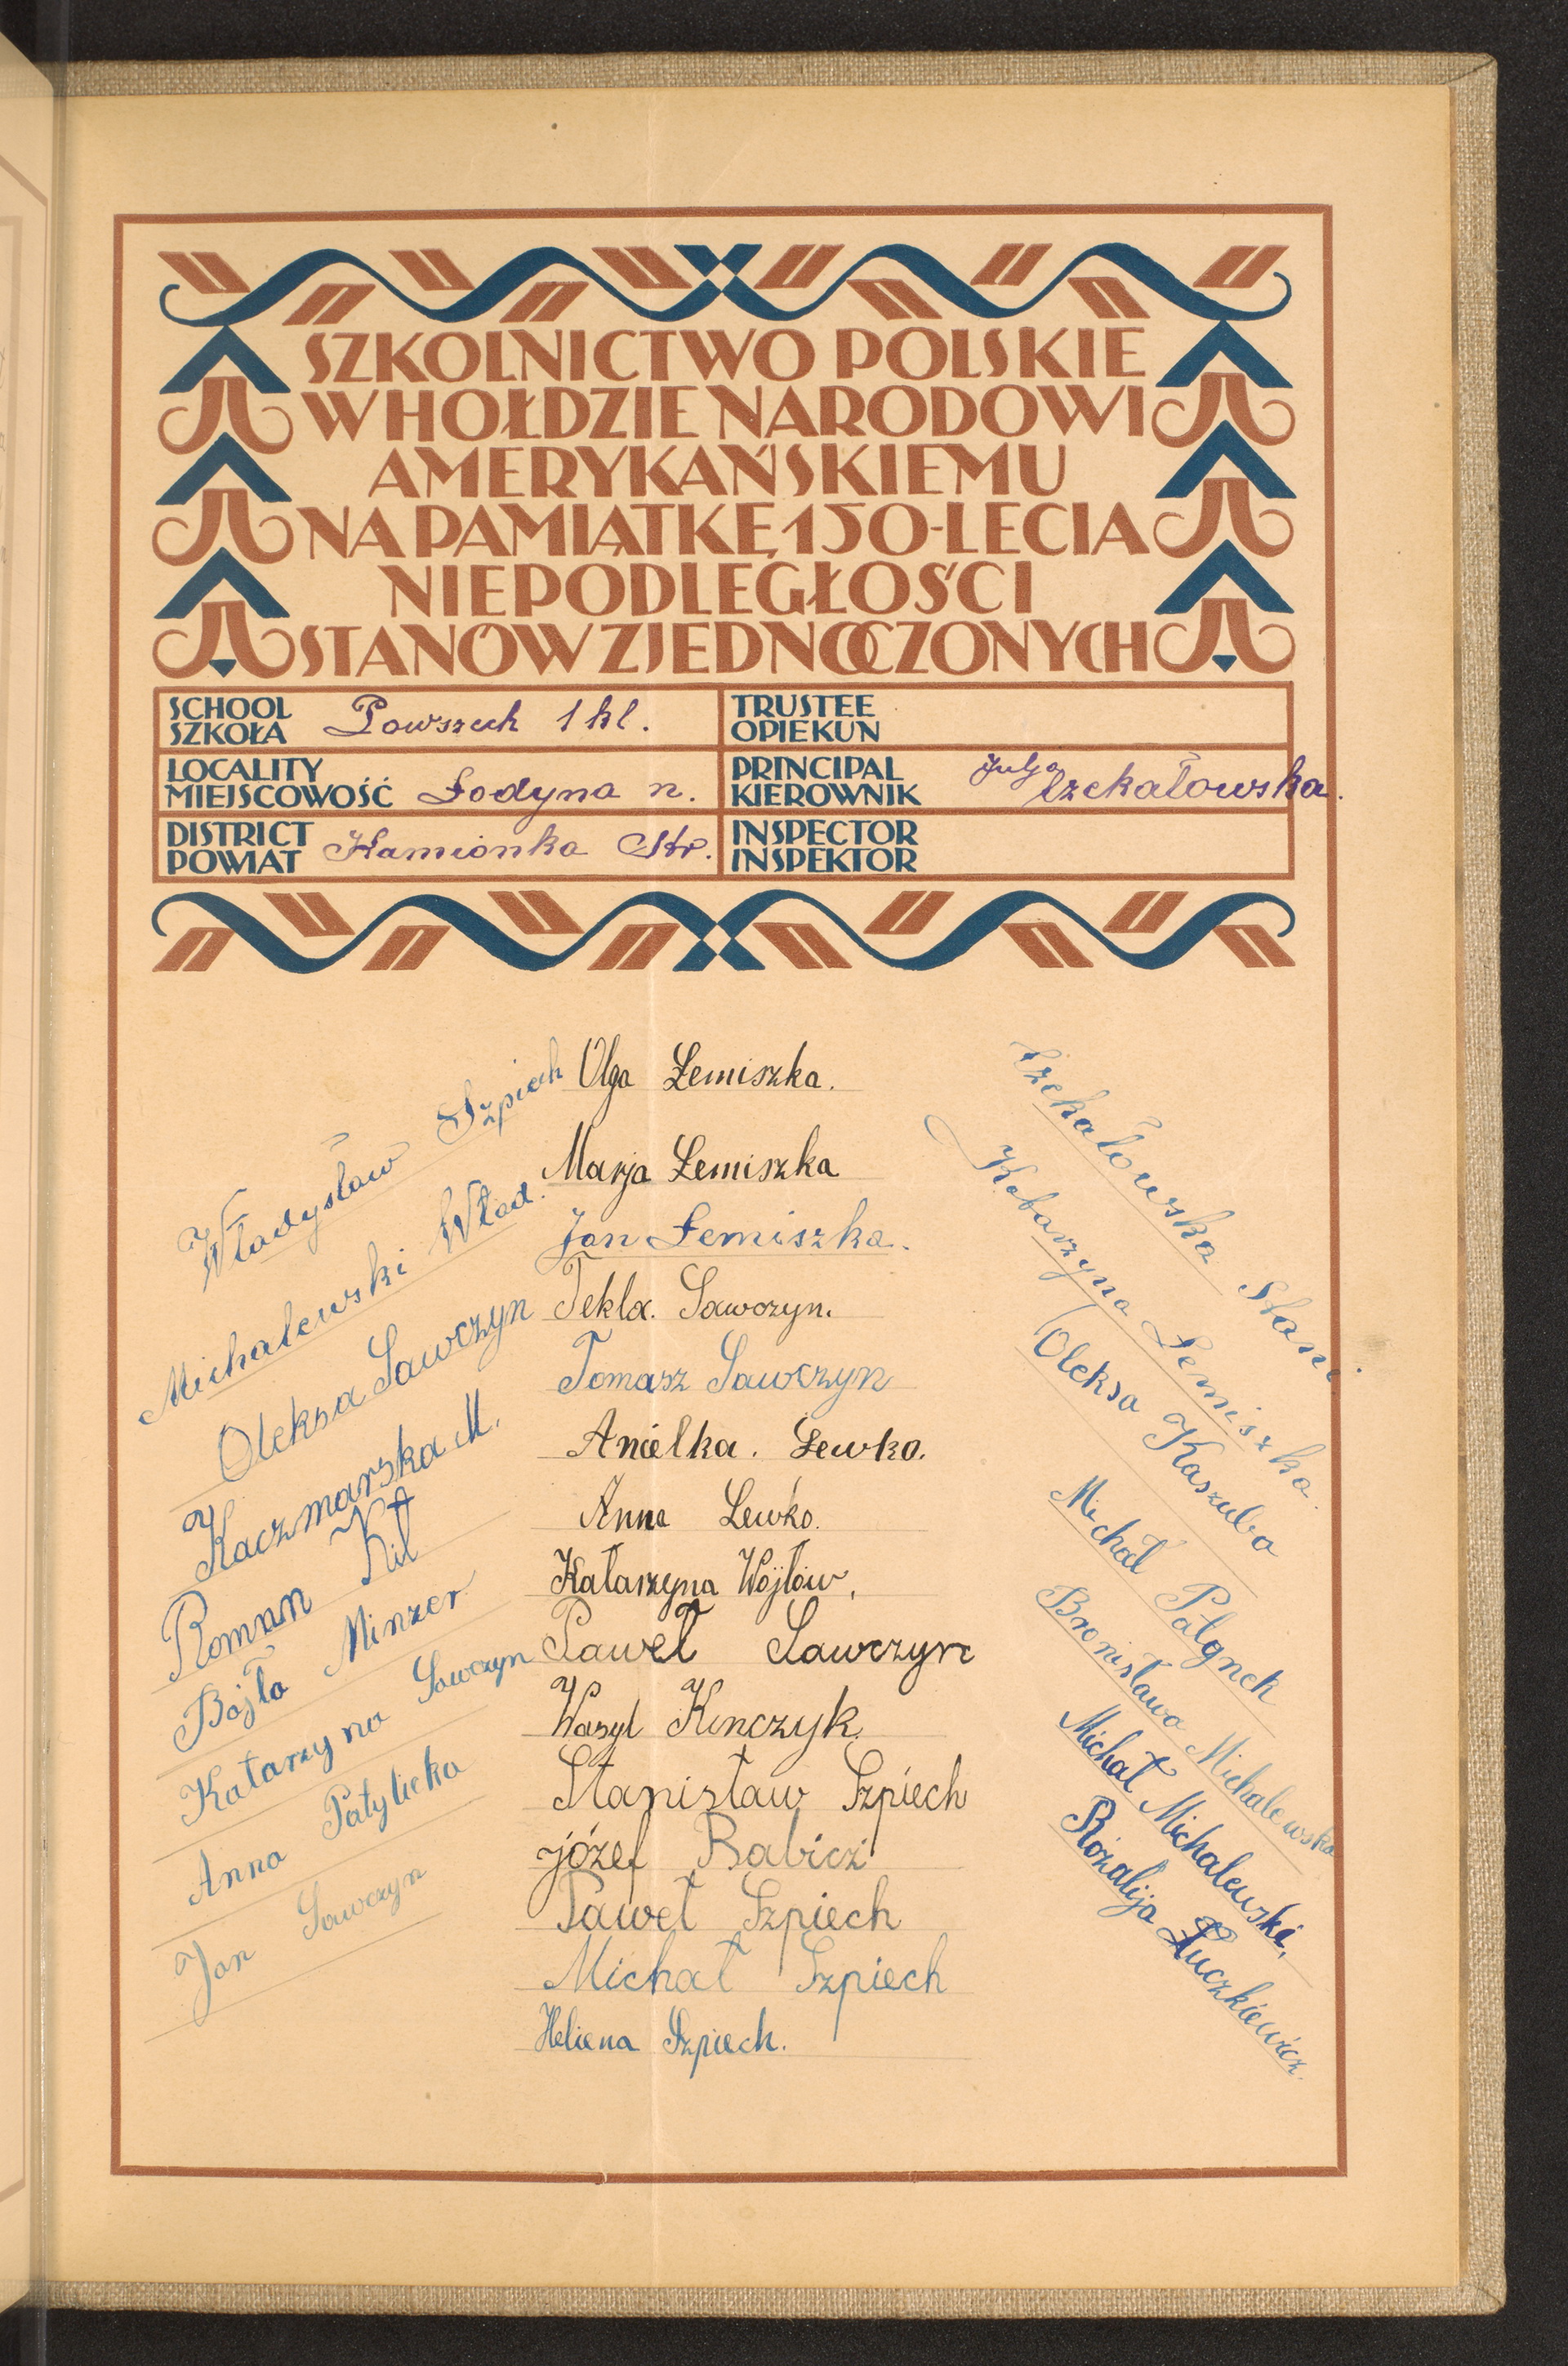 SZKOLNICTWO POLSKIE
W HOŁDZIE NARODOWI
AMERYKAŃSKIEMU
NA PAMIĄTKĘ 150-LECIA
NIEPODLEGŁOŚCI
STANÓW ZJEDNOCZONYCH
SCHOOL
SZKOŁA Powszech 1 kl.
TRUSTEE
OPIEKUN
LOCALITY
MIEJSCOWOŚĆ Łodyna n.
PRINCIPAL
KIEROWNIK Julja Czekałowska.
DISTRICT
POWIAT Kamionka Str.
INSPECTOR
INSPEKTOR
Władysław Szpiech
Michalewski Wład.
Oleksa Sawczyn
Kaczmarska M.
Roman Kit
Bajla Minzer
Katarzyna Sawczyn
Anna Patylicka
Jan Sawczyn
Olga Łemiszka.
Marja Łemiszka
Jan Łemiszka.
Tekla. Sawczyn.
Tomasz Sawczyn
Anielka. Lewko.
Anna Lewko.
Katarzyna Wójtów.
Paweł Sawczyn
Wasyl Kinczyk.
Stanisław Szpiech
józef Babicz
Paweł Szpiech
Michał Szpiech
Heliena Szpiech.
Czekałowska Stani.
Katarzyna Łemiszka.
Oleksa Kaszuba
Michał
Bronisława Michalewska
Michał Michalewski,
Rozalija Łuczkiewicz.